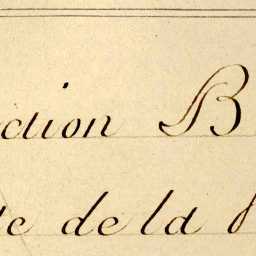 ction B
te de la